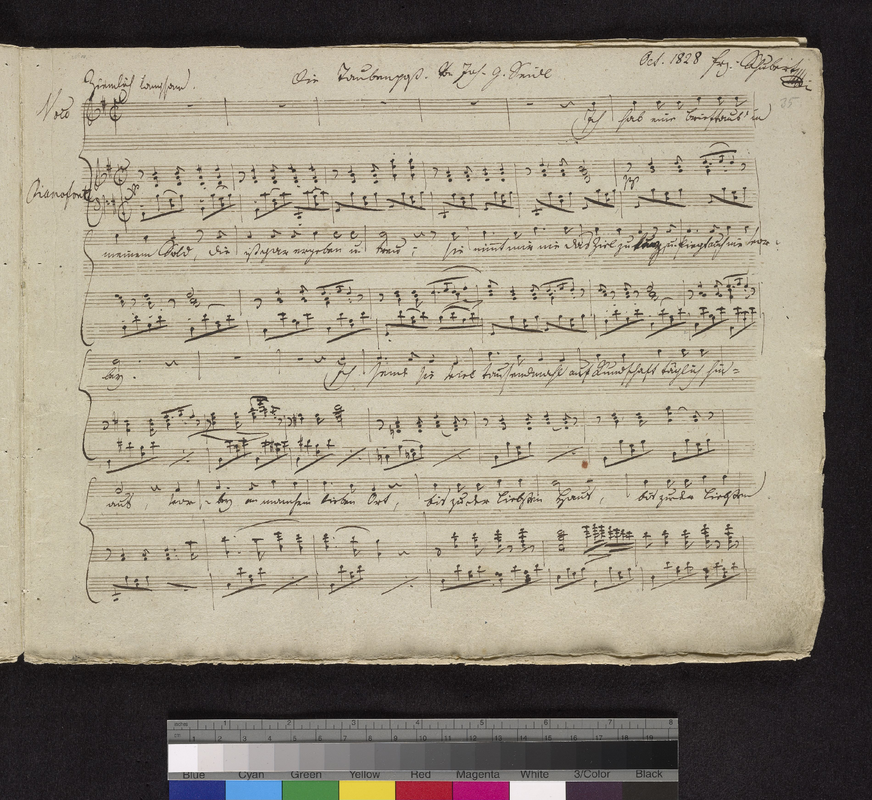 Oct. 1828 frz. Schubert
Die Taubenpost. v. Joh. G. Seidl
Ziemlich langsam.
35
Voce
Ich hab eine Brieftaub' in
Pianoforte
meinem Sold, die ist gar ergeben u. treu; sie nimmt mir nie das Ziel zu kurz, u. fliegt auch nie vor-
bey. Ich sende sie viel tausendmahl auf Kundschaft täglich hin-
aus, vor-bey an manchem lieben Ort, bis zu der Liebsten Haus, bis zu der Liebsten
inches 1 2 3 4 5 6 7 8
cm 1 2 3 4 5 6 7 8 9 10 11 12 13 14 15 16 17 18 19
Blue Cyan Green Yellow Red Magenta White 3/Color Black